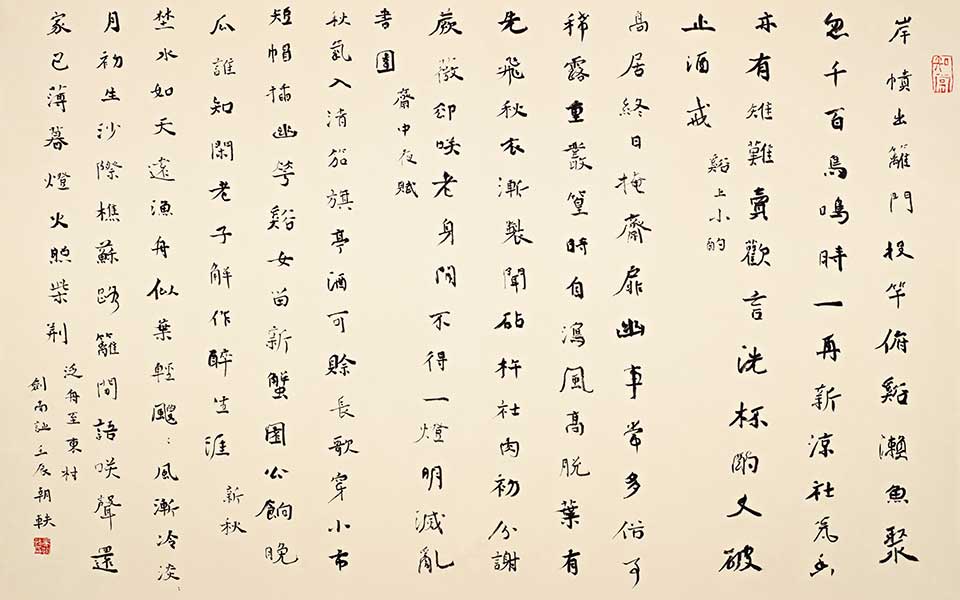 岸幘出籬門投竿俯谿瀨魚聚
忽千百鳥鳴時一再新涼社瓮香
亦有雉難賣歡言洗杯酌又破
止酒戒
谿上小酌
高居終日掩齋扉幽事常多俗事
稀露重叢篁時自瀉風高脫葉有
先飛秋衣漸製聞砧杵社肉初分謝
蕨薇却咲老身閒不得一燈明滅亂
書圍
齋中夜賦
秋氣入清笳旗亭酒可賒長歌穿小市
短帽插幽花谿女留新蟹園公餉晚
瓜誰知閑老子解作醉生涯
新秋
埜水如天遠漁舟似葉輕颼〻風漸冷淡〻
月初生沙際樵蘇路籬間語咲聲還
家已薄暮燈火照柴荆
泛舟至東村
劍南詩 壬辰朝軼